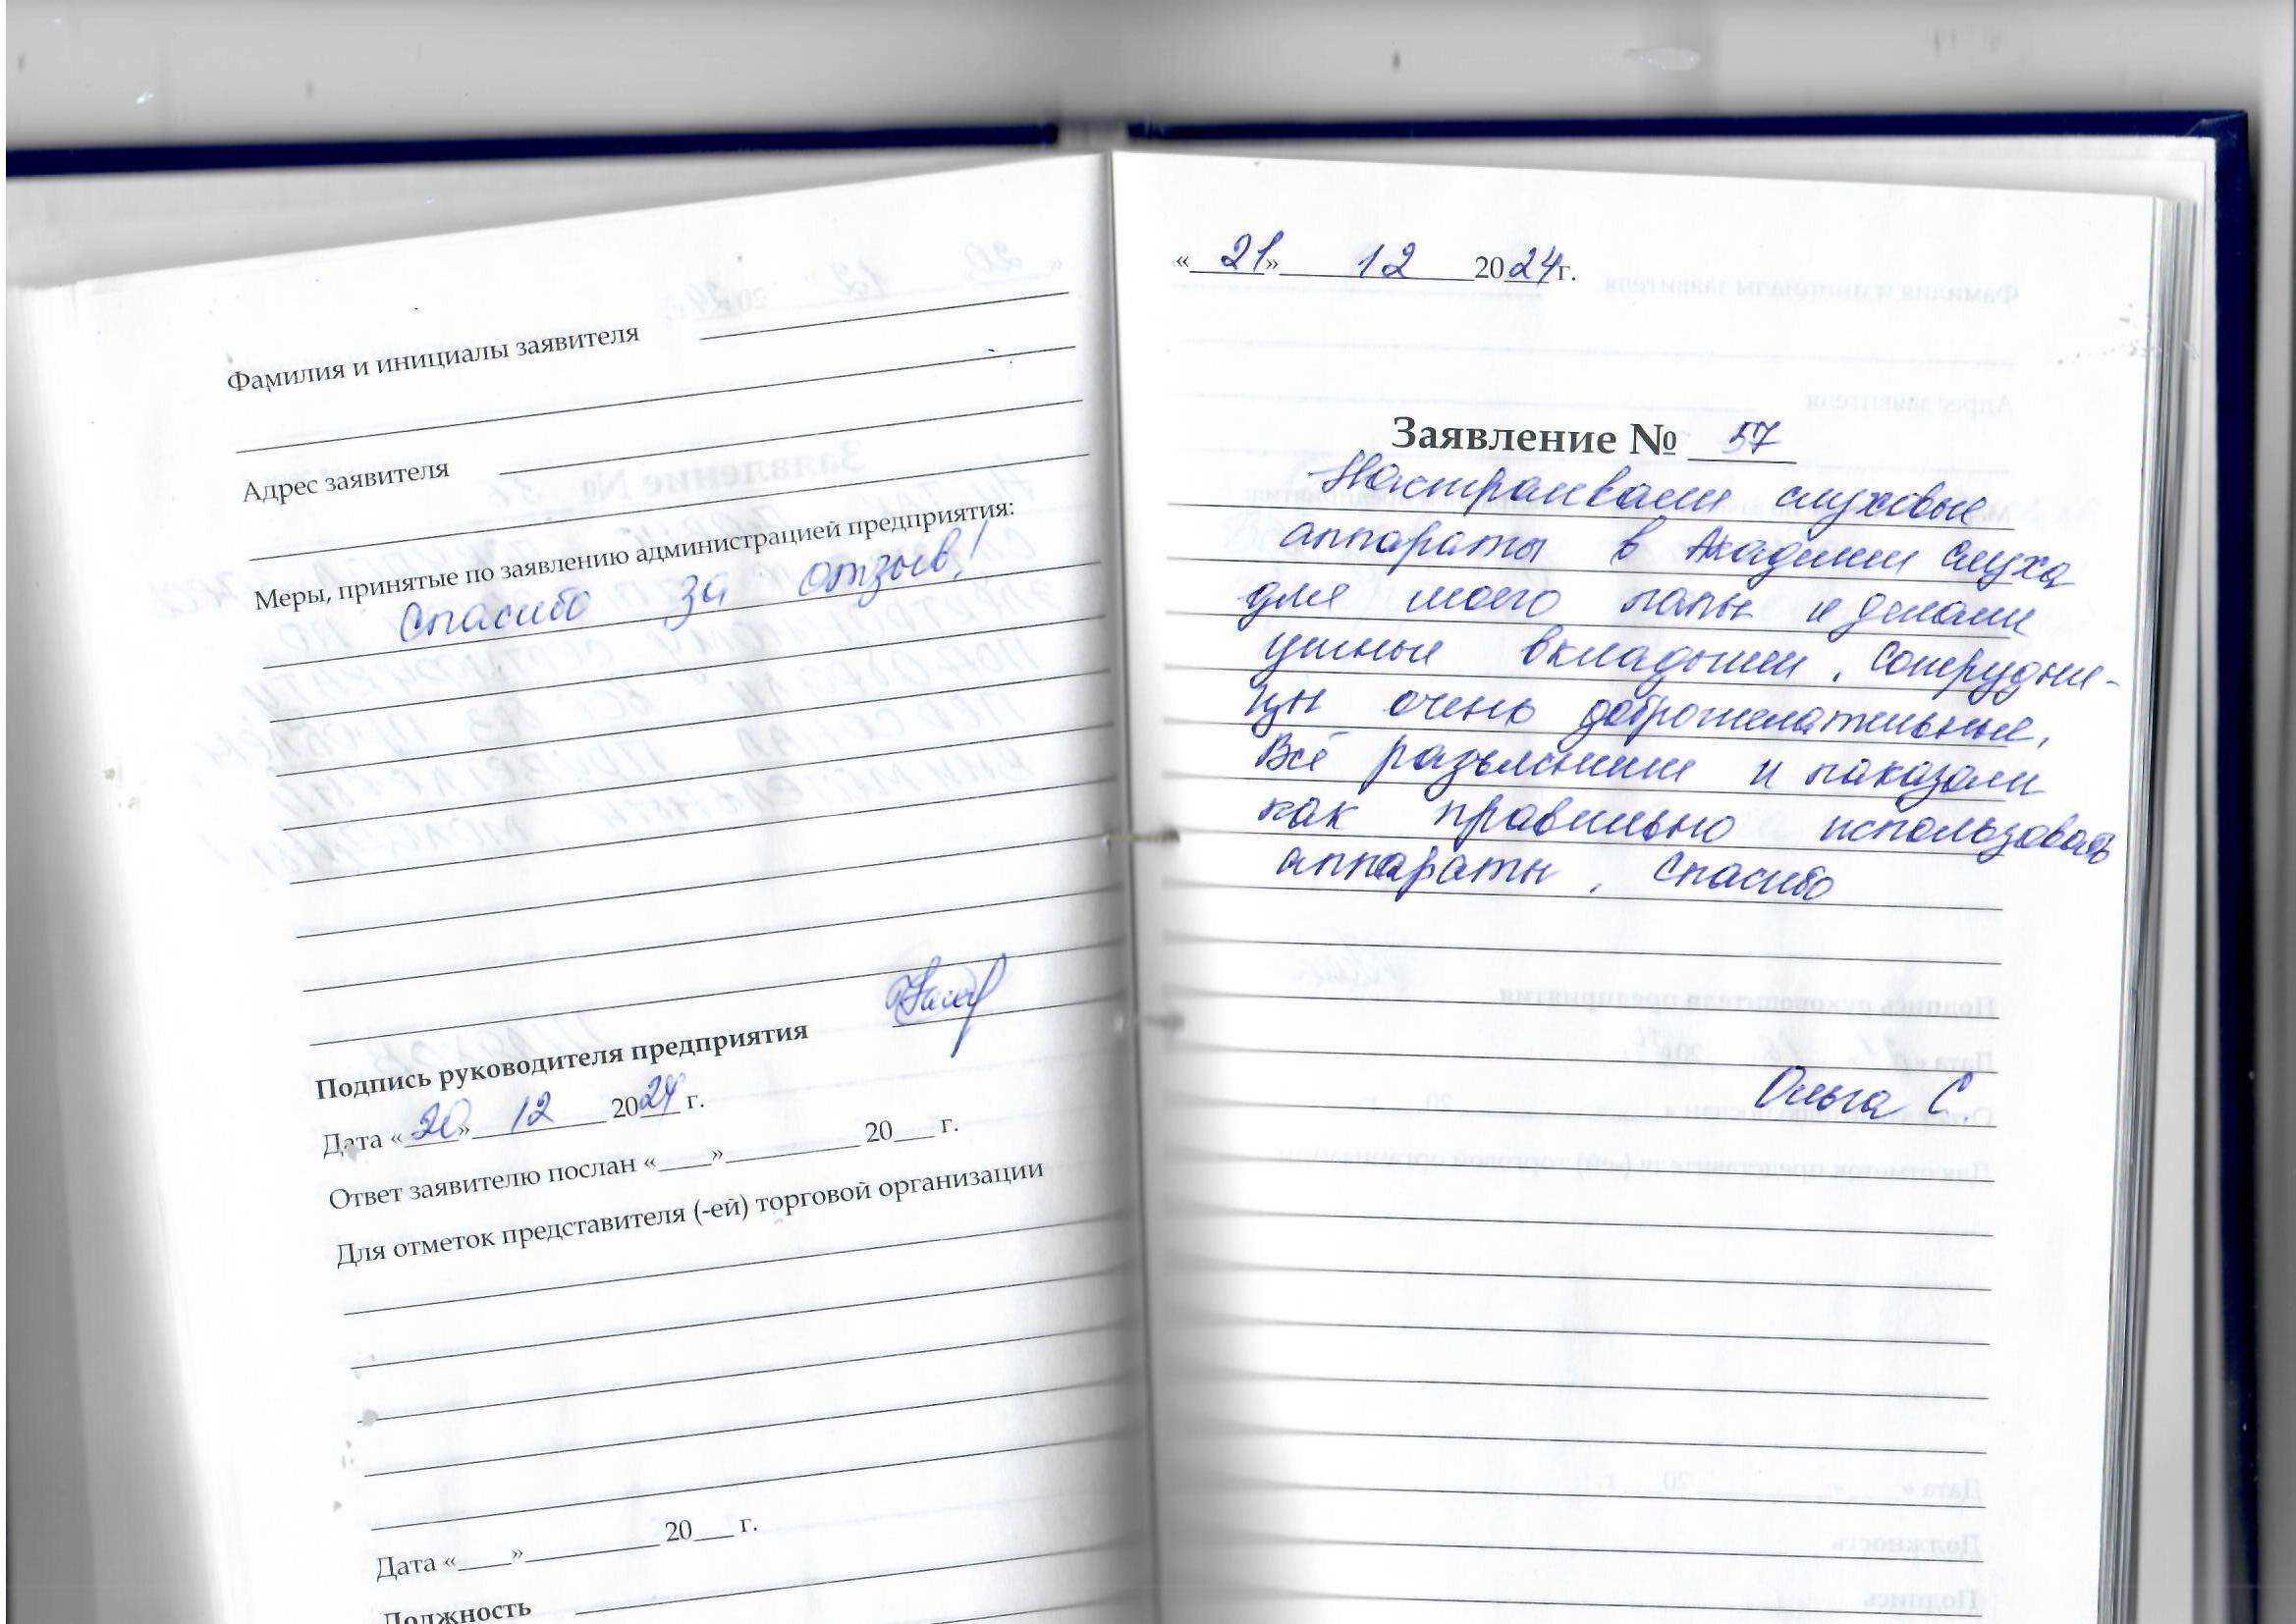 Фамилия и инициалы заявителя
Адрес заявителя
Меры, принятые по заявлению администрацией предприятия:
Спасибо за отзыв!
Подпись руководителя предприятия
Дата «20» 12 2024 г.
Ответ заявителю послан «____»__________ 20___ г.
Для отметок представителя (-ей) торговой организации
Дата «____»__________ 20___ г.
Должность
«21» 12 2024г.
Заявление № 57
Настраивали слуховые
аппараты в Академии слуха
для моего папы и делали
ушные вкладыши. Сотрудни-
цы очень доброжелательные.
Всё разъяснили и показали
как правильно использовать
аппараты. Спасибо
Ольга С.